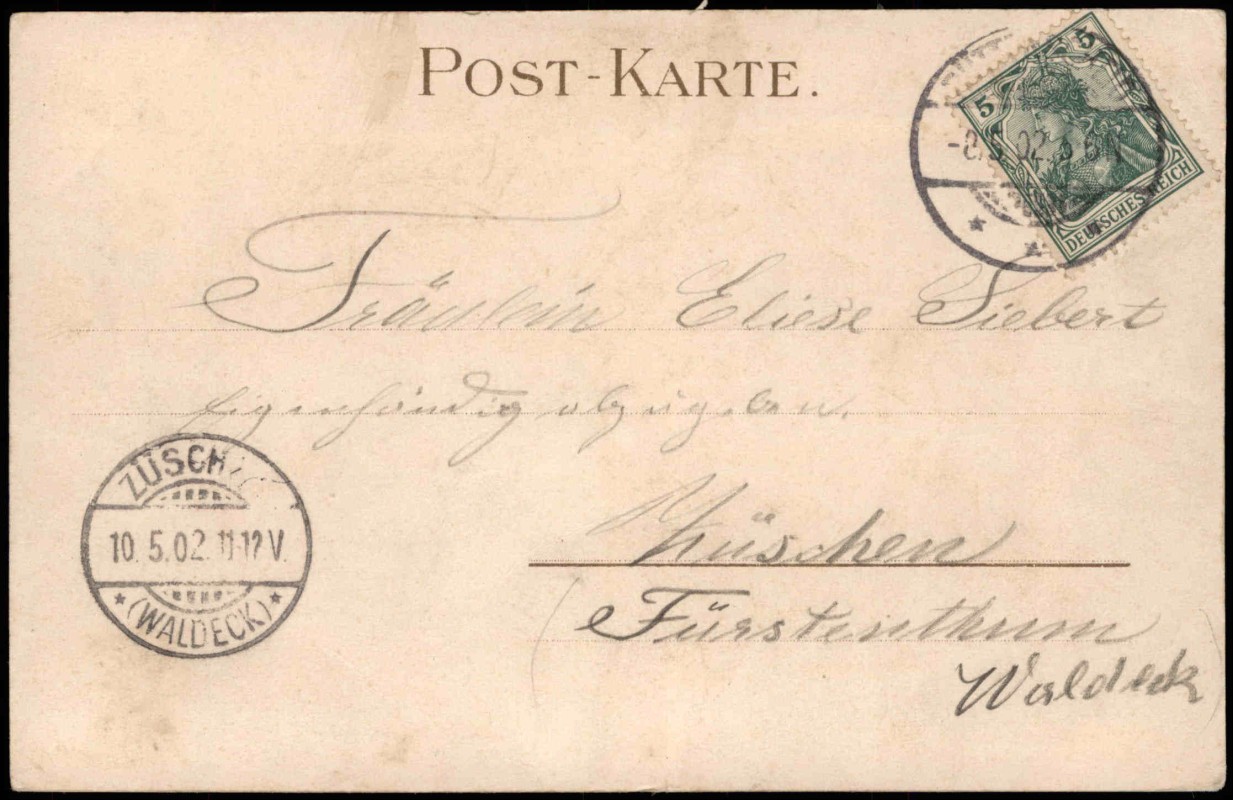 POST-KARTE.
5 5
DEUTSCHES REICH
Fräulein Eliese Siebert
Eigenhändig abzugeben.
ZÜSCHEN
10.5.02. 11-12 V.
(WALDECK)
Züschen
Fürstenthum
Waldeck